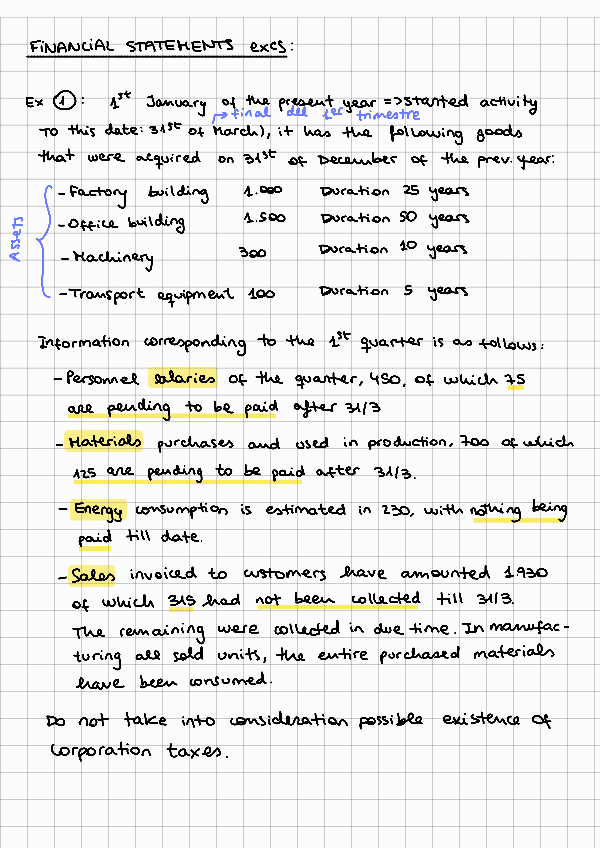 FINANCIAL STATEMENTS excs:
Ex ①: 1st January of the present year => started activity
→ final del 1er trimestre
To this date: 31st of March), it has the following goods
that were acquired on 31st of December of the prev. year:
Assets
- Factory building 1.000 Duration 25 years
- Office building 1.500 Duration 50 years
- Machinery 300 Duration 10 years
- Transport equipment 100 Duration 5 years
Information corresponding to the 1st quarter is as follows:
- Personnel salaries of the quarter, 450, of which 75
are pending to be paid after 31/3
- Materials purchases and used in production, 700 of which
125 are pending to be paid after 31/3.
- Energy consumption is estimated in 230, with nothing being
paid till date.
- Sales invoiced to customers have amounted 1930
of which 315 had not been collected till 31/3.
The remaining were collected in due time. In manufac-
turing all sold units, the entire purchased materials
have been consumed.
Do not take into consideration possible existence of
Corporation taxes.